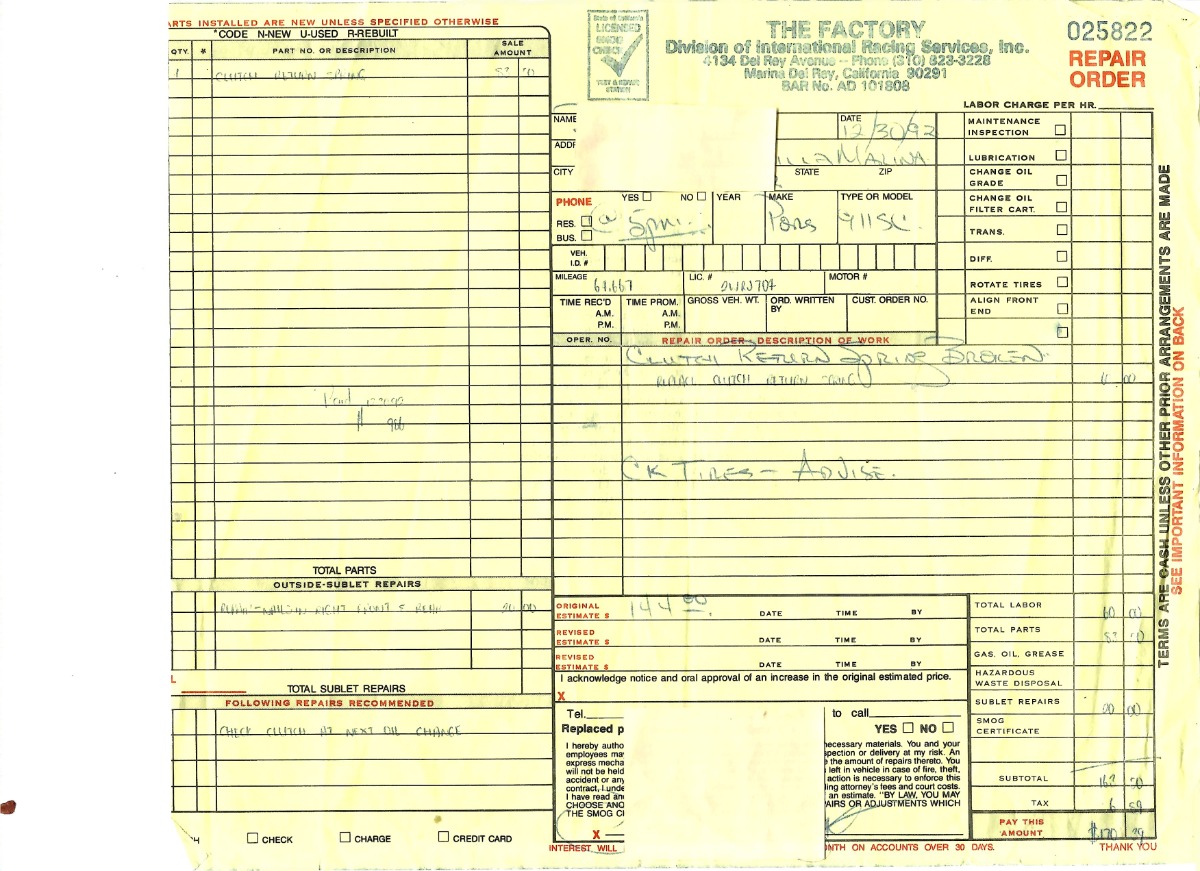 PARTS INSTALLED ARE NEW UNLESS SPECIFIED OTHERWISE
*CODE N-NEW U-USED R-REBUILT
QTY. * PART NO. OR DESCRIPTION SALE AMOUNT
1 CLUTCH RETURN SPRING
TOTAL PARTS
OUTSIDE-SUBLET REPAIRS
RIGHT FRONT & REAR 20 00
TOTAL SUBLET REPAIRS
FOLLOWING REPAIRS RECOMMENDED
CHECK CLUTCH AT NEXT OIL CHANGE
CHECK CHARGE CREDIT CARD
State of California
LICENSED
SMOG
CHECK
TEST & REPAIR
STATION
THE FACTORY
Division of International Racing Services, Inc.
4134 Del Rey Avenue -- Phone (310) 823-3228
Marina Del Rey, California 90291
BAR No. AD 101808
025822
REPAIR
ORDER
LABOR CHARGE PER HR.
NAME DATE 12/30/92
ADDR MARINA
CITY STATE ZIP
PHONE YES NO YEAR MAKE TYPE OR MODEL
RES. @ 5pm. Pors 911SC.
BUS.
VEH. I.D. #
MILEAGE LIC. # MOTOR #
TIME REC'D TIME PROM. GROSS VEH. WT. ORD. WRITTEN BY CUST. ORDER NO.
A.M. A.M.
P.M. P.M.
MAINTENANCE INSPECTION
LUBRICATION
CHANGE OIL GRADE
CHANGE OIL FILTER CART.
TRANS.
DIFF.
ROTATE TIRES
ALIGN FRONT END
OPER. NO. REPAIR ORDER - DESCRIPTION OF WORK
CLUTCH RETURN SPRING BROKEN.
REPLACE CLUTCH RETURN SPRING
Paid
$
CK TIRES - ADVISE.
ORIGINAL ESTIMATE $ 144.00 DATE TIME BY
REVISED ESTIMATE $ DATE TIME BY
REVISED ESTIMATE $ DATE TIME BY
I acknowledge notice and oral approval of an increase in the original estimated price.
X
Tel. to call
Replaced p YES NO
I hereby autho necessary materials. You and your
employees may pection or delivery at my risk. An
express mecha e the amount of repairs thereto. You
will not be held left in vehicle in case of fire, theft,
accident or any action is necessary to enforce this
contract, I unde ling attorney's fees and court costs.
I have read and an estimate. "BY LAW, YOU MAY
CHOOSE ANO AIRS OR ADJUSTMENTS WHICH
THE SMOG C
X
INTEREST WILL NTH ON ACCOUNTS OVER 30 DAYS.
TOTAL LABOR 60 00
TOTAL PARTS
GAS, OIL, GREASE
HAZARDOUS WASTE DISPOSAL
SUBLET REPAIRS 20 00
SMOG CERTIFICATE
SUBTOTAL
TAX 6 89
PAY THIS AMOUNT $170 39
THANK YOU
TERMS ARE CASH UNLESS OTHER PRIOR ARRANGEMENTS ARE MADE
SEE IMPORTANT INFORMATION ON BACK